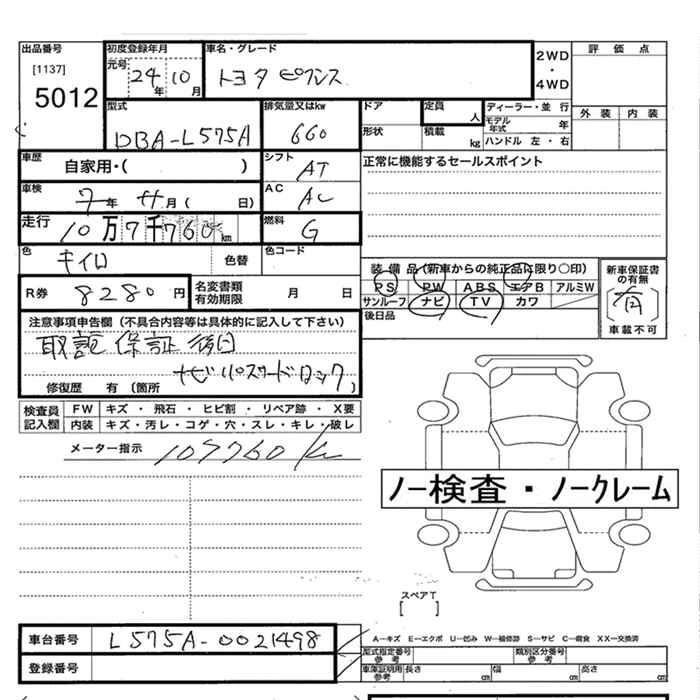 出品番号 初度登録年月 車名・グレード 2WD・4WD 評価点
[1137] 元号 24年 10月 トヨタ ピクシス
5012
型式 排気量又はkw ドア 定員 人 ディーラー・並行 外装 内装
DBA-L575A 660 形状 積載 kg モデル年式 年
ハンドル 左・右
車歴 自家用・( ) シフト AT 正常に機能するセールスポイント
車検 7年 月( 日) AC AC
走行 10万7千760km 燃料 G
色 キイロ 色替 色コード
装備品(新車からの純正品に限り○印) 新車保証書の有無
PS PW ABS エアB アルミW (有)
サンルーフ ナビ TV カワ 車載不可
R券 8280円 名変書類有効期限 月 日 後日品
注意事項申告欄(不具合内容等は具体的に記入して下さい)
取説 保証 後日
ナビ パスワードロック
修復歴 有(箇所 )
検査員記入欄 FW キズ・飛石・ヒビ割・リペア跡・X要
内装 キズ・汚レ・コゲ・穴・スレ・キレ・破レ
メーター指示 107760 km
ノー検査・ノークレーム
スペアT
[ ]
車台番号 L575A-0021498 A―キズ E―エクボ U―凹み W―補修跡 S―サビ C―腐食 XX―交換済
登録番号 型式指定番号参考 類別区分番号参考
車庫証明用参考 長さ cm 幅 cm 高さ cm